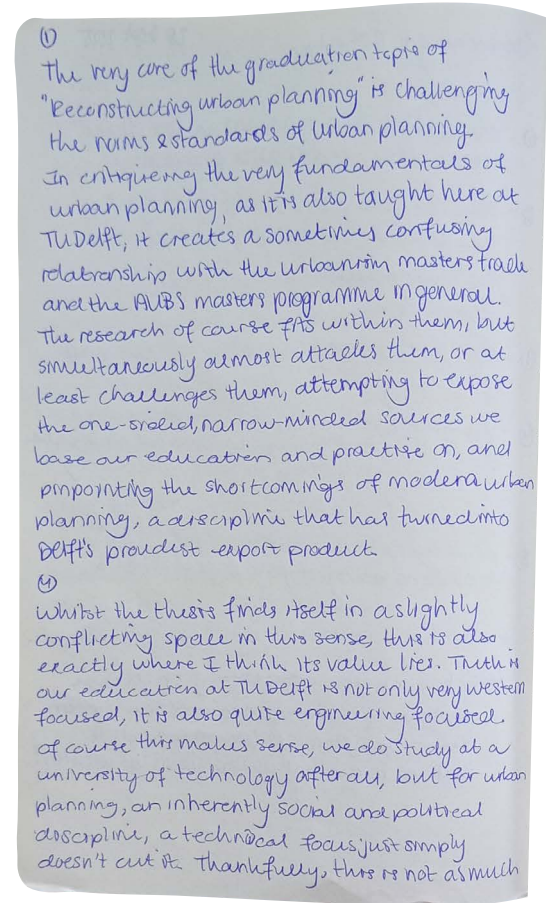 ①
The very core of the graduation topic of
"Reconstructing urban planning" is challenging
the norms & standards of urban planning.
In critiqueing the very fundamentals of
urban planning, as it is also taught here at
TU Delft, it creates a sometimes confusing
relationship with the Urbanism masters track
and the AUBS masters programme in general.
The research of course fits within them, but
simultaneously almost attacks them, or at
least challenges them, attempting to expose
the one-sided, narrow-minded sources we
base our education and practise on, and
pinpointing the shortcomings of modern urban
planning, a discipline that has turned into
Delft's proudest export product.
④
Whilst the thesis finds itself in a slightly
conflicting space in this sense, this is also
exactly where I think its value lies. Truth is
our education at TU Delft is not only very western
focused, it is also quite engineering focused.
Of course this makes sense, we do study at a
university of technology after all, but for urban
planning, an inherently social and political
discipline, a technical focus just simply
doesn't cut it. Thankfully, this is not as much